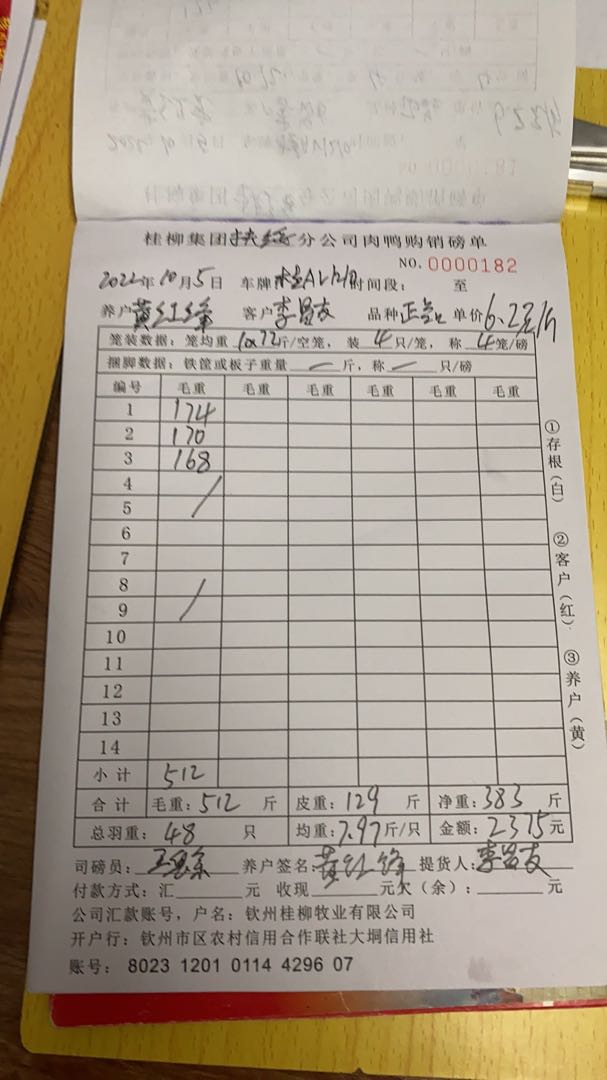 桂柳集团扶绥分公司肉鸭购销磅单
NO. 0000182
2022年10月5日 车牌 时间段: 至
养户黄红锋 客户李昌友 品种: 单价6.2元/斤
笼装数据: 笼均重10.72斤/空笼, 装4只/笼, 称4笼/磅
捆脚数据: 铁筐或板子重量一斤, 称一只/磅
编号 毛重 毛重 毛重 毛重 毛重 毛重
1 174
2 170
3 168
4
5
6
7
8
9
10
11
12
13
14
小计 512
合计 毛重: 512 斤 皮重: 129 斤 净重: 383 斤
总羽重: 48 只 均重: 7.97斤/只 金额: 2375元
司磅员: 养户签名: 黄红锋 提货人: 李昌友
付款方式: 汇 元 收现 元欠(余): 元
公司汇款账号, 户名: 钦州桂柳牧业有限公司
开户行: 钦州市区农村信用合作联社大垌信用社
账号: 8023 1201 0114 4296 07
①存根(白)
②客户(红)
③养户(黄)